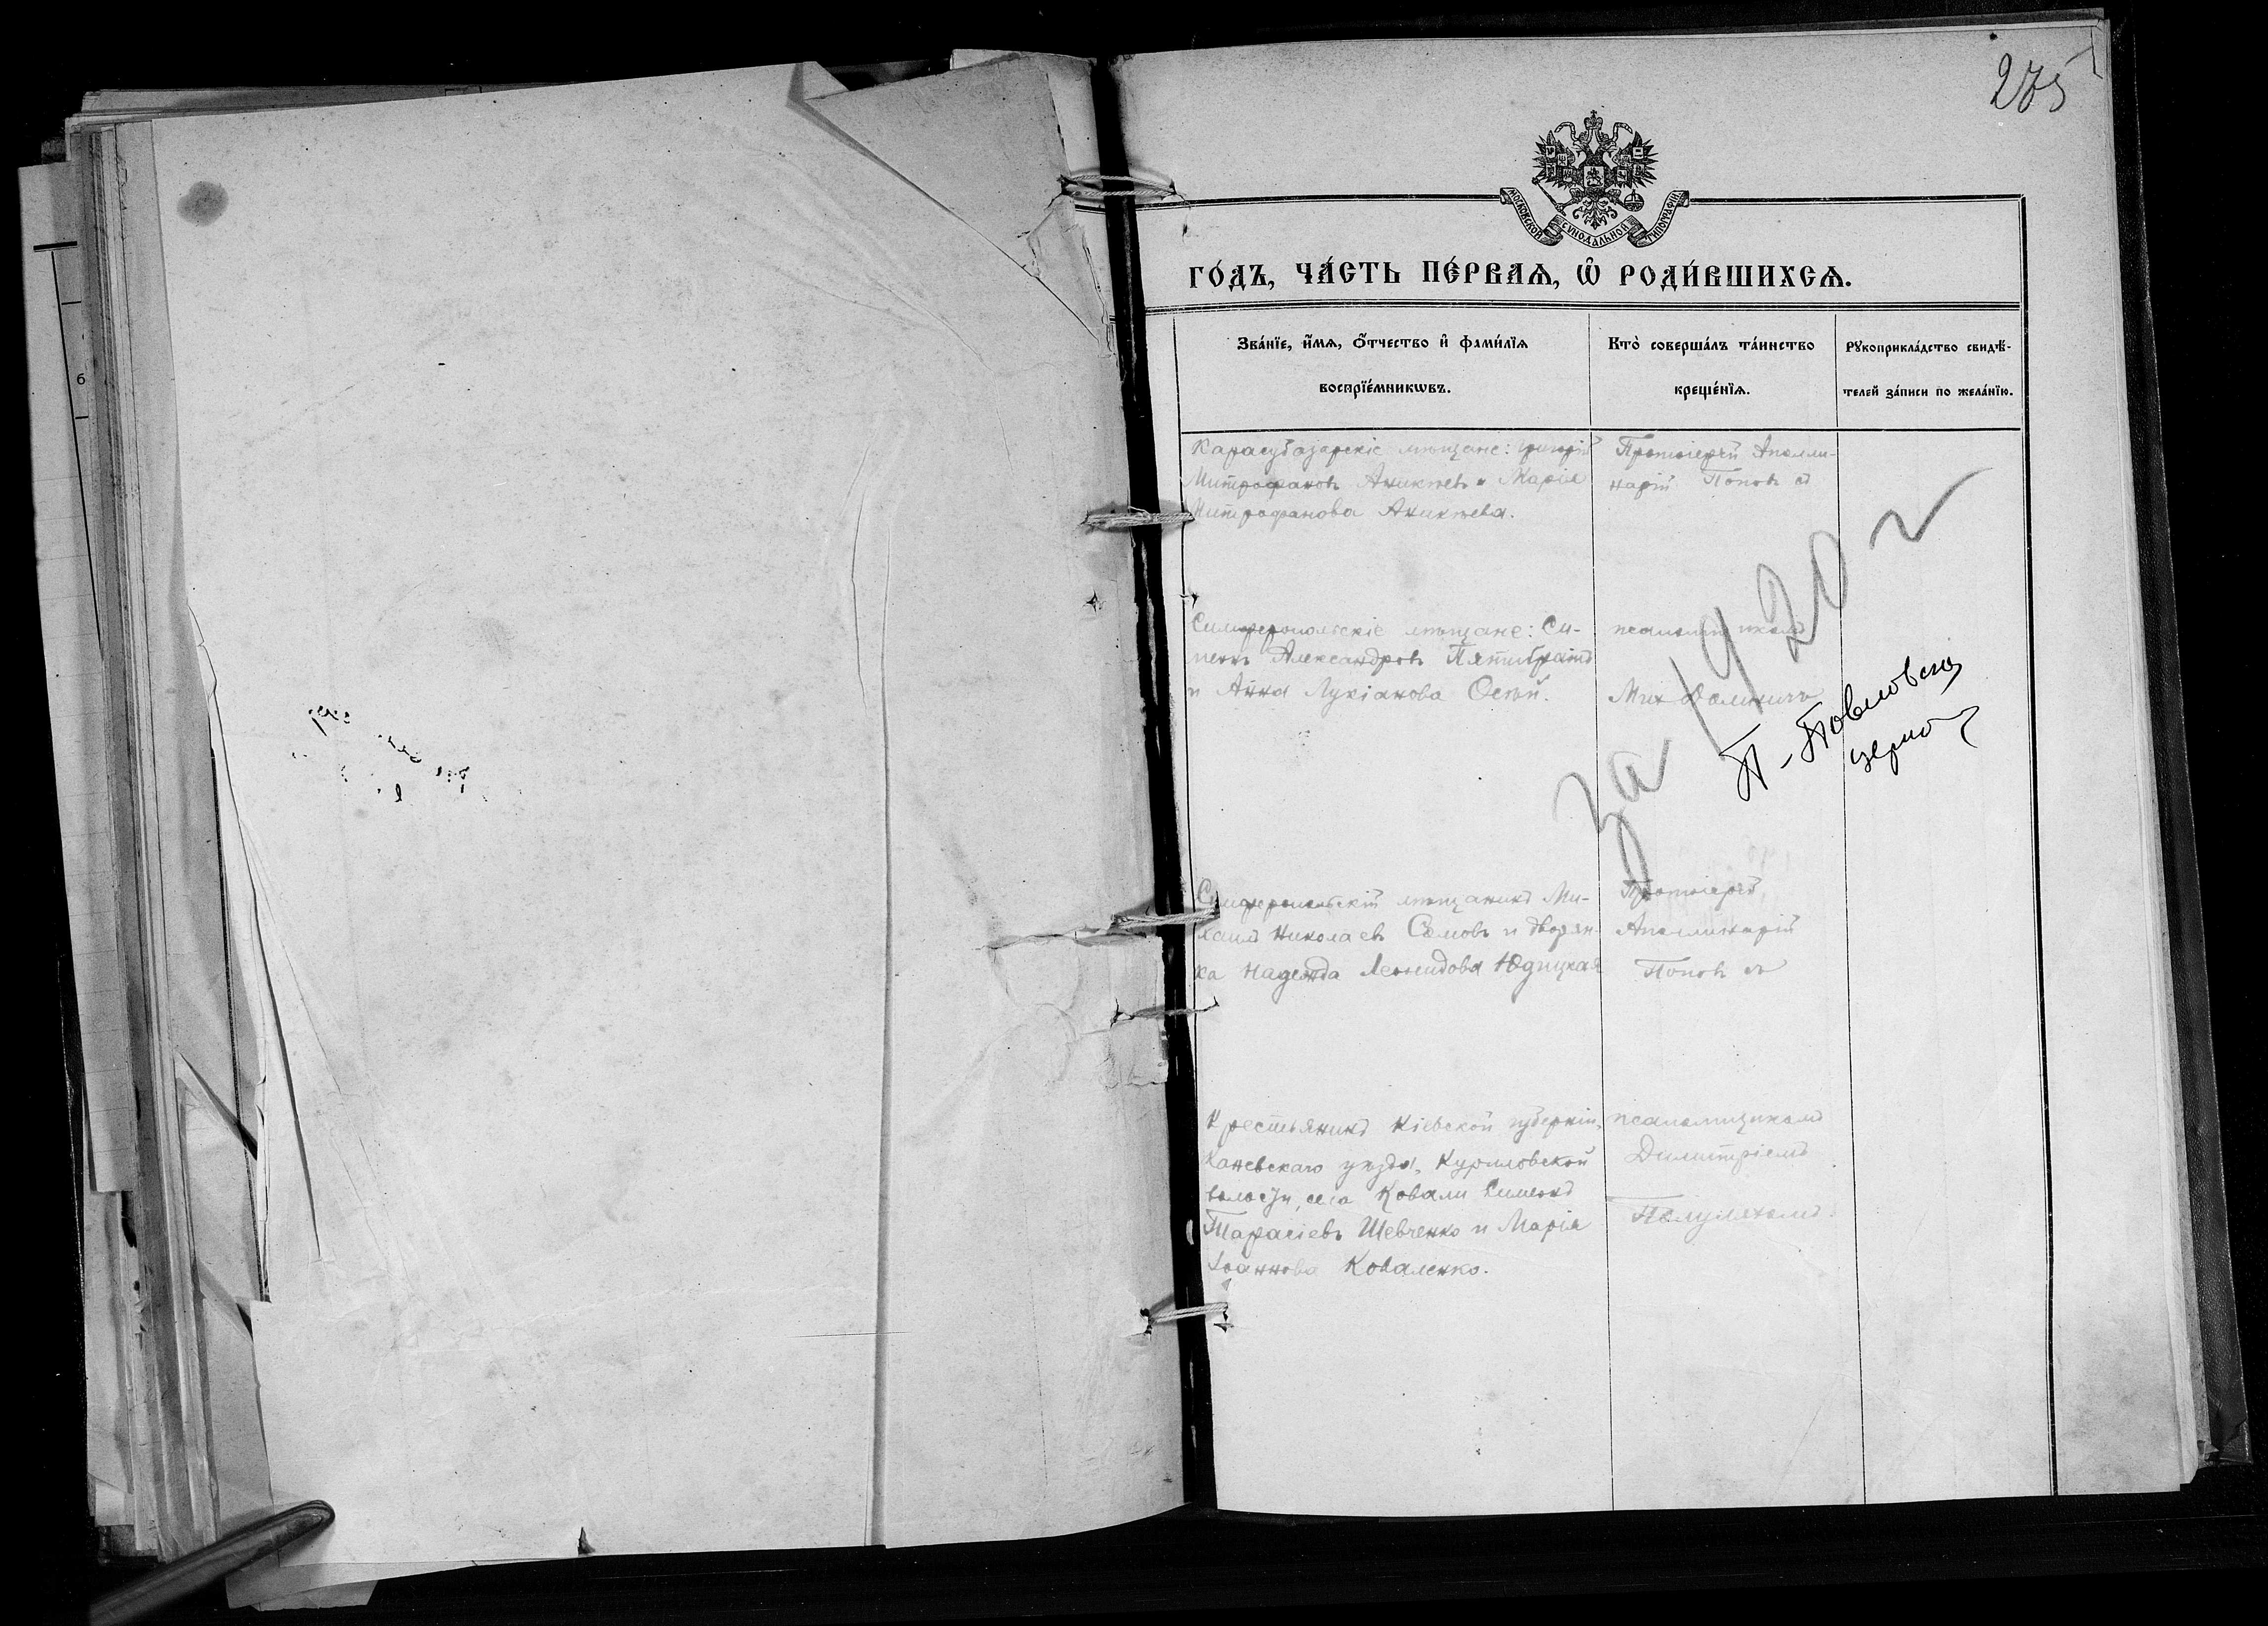 275
МОСКОВСКОЙ СѴНОДАЛЬНОЙ ТИПОГРАФІИ
ГО́ДЪ, ЧА́СТЬ ПЕ́РВАѦ, Ѡ҆ РОДИ́ВШИХСѦ.
Зва́нїе, и҆́мѧ, ѻ҆́тчество и҆ фами́лїѧ
воспрїе́мникѡвъ.
Кто̀ соверша́лъ та́инство
креще́нїѧ.
Рꙋкоприкла́дство свидѣ́-
телей за́писи по жела́нїю.
Карасубазарскіе мѣщане: Григорій
Митрофановъ Аникѣевъ и Марія
Митрофанова Аникѣева.
Протоіерей Аполли-
нарій Поповъ съ
Симферопольскіе мѣщане: Си-
меонъ Александровъ Пятибратъ
и Анна Лукіанова
псаломщикомъ
Мих
за 1920 г
П-Павловская
церковь
Симферопольскій мѣщанинъ Ми-
хаилъ Николаевъ Сомовъ и дворян-
ка Надежда Леонидова Юдицкая
Протоіерей
Аполлинарій
Поповъ съ
Крестьянинъ Кіевской губерніи,
Каневскаго уѣзда, Куриловской
волости, села Ковали Симеонъ
Тарасіевъ Шевченко и Марія
Іоаннова Коваленко.
псаломщикомъ
Димитріемъ